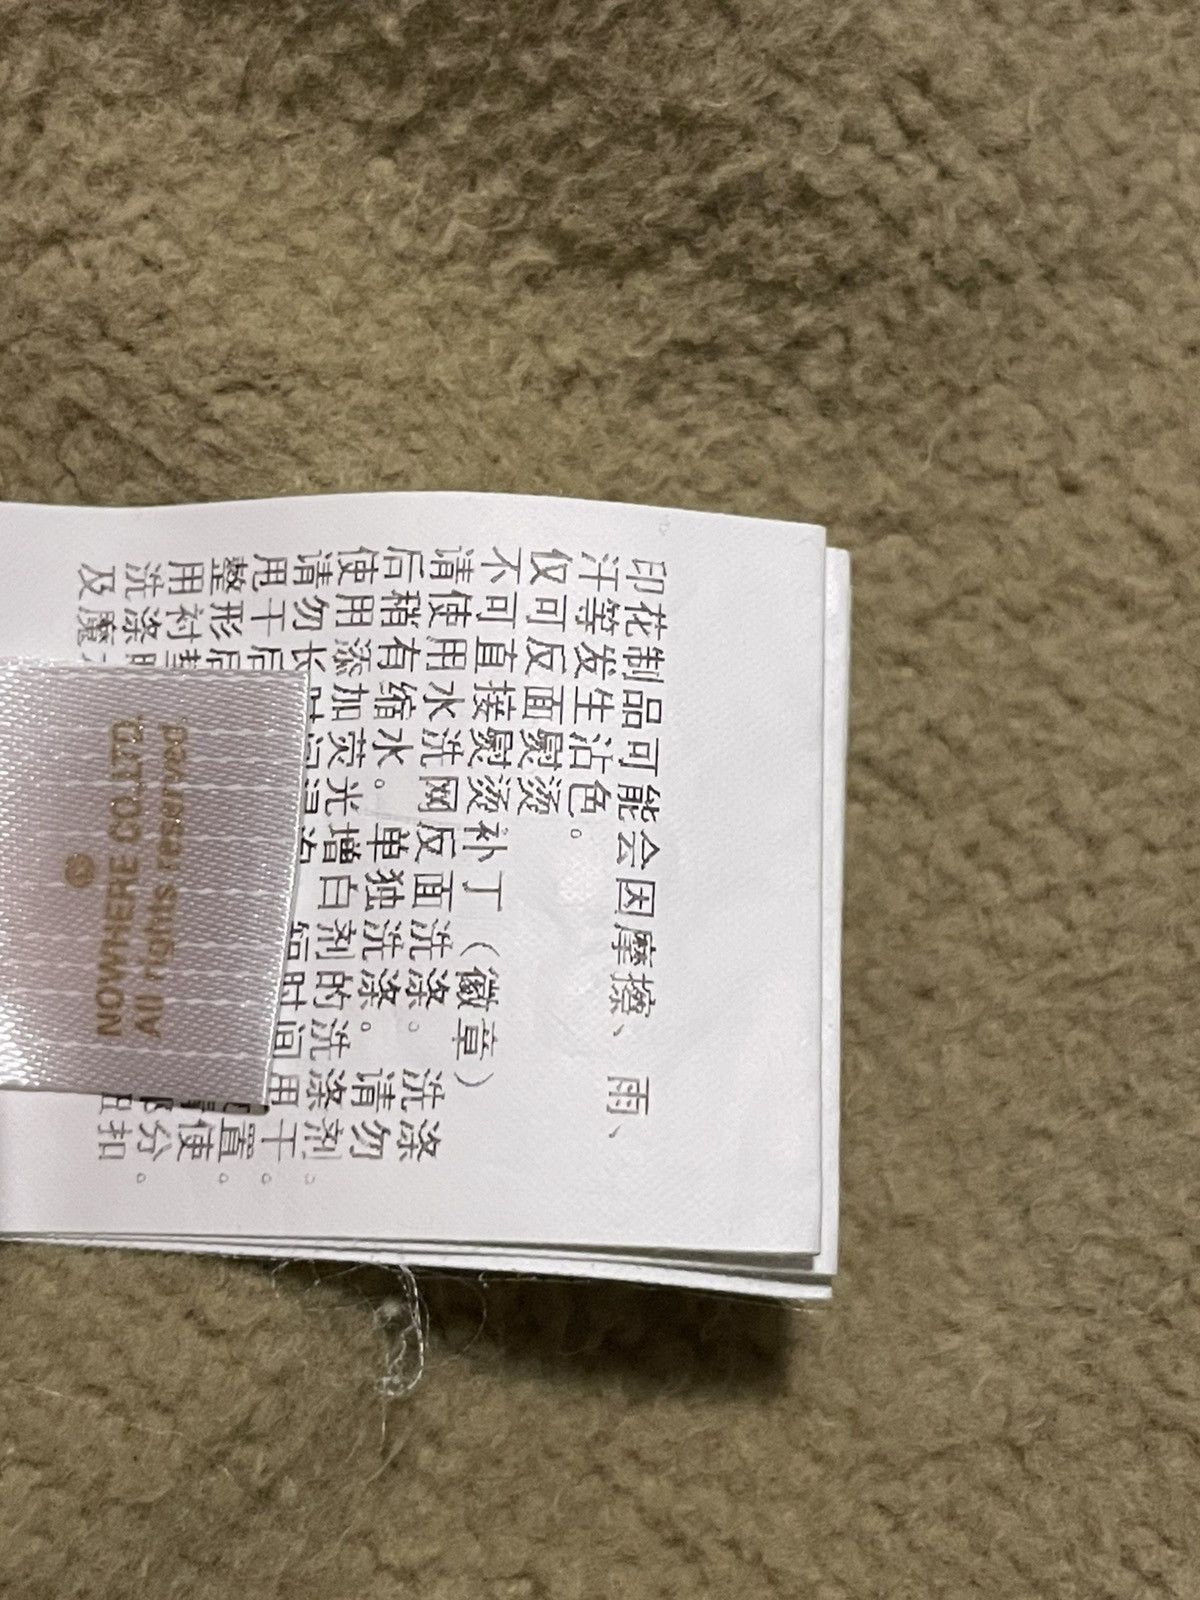 印花制品可能会因摩擦、雨、
汗等发生沾色。
仅可反面熨烫
不可直接熨烫补丁（徽章）
请使用水洗网反面洗涤。洗涤
后稍有缩水。单独洗涤。请勿
使用添加荧光增白剂的洗涤剂。
请勿长 时间用干。
甩干后 置。
整形后 使
用衬 部分。
洗涤 扣
及魔
©
NOWHERE CO.,LTD.
All rights reserved.